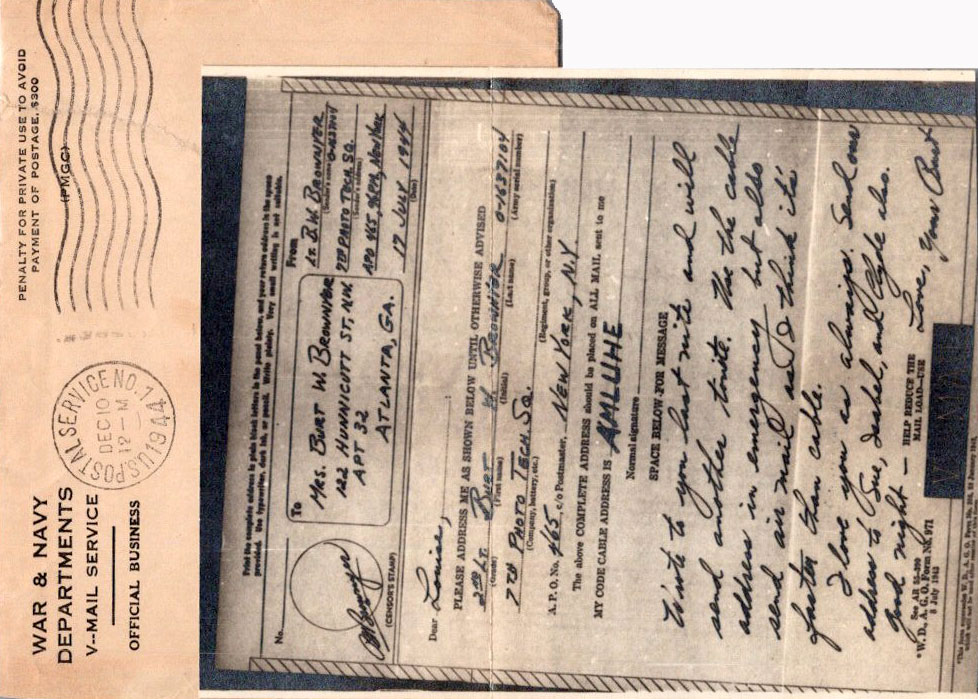 WAR & NAVY
DEPARTMENTS
V--MAIL SERVICE
OFFICIAL BUSINESS
U.S. POSTAL SERVICE NO. 1
DEC 10
12-M
1944
PENALTY FOR PRIVATE USE TO AVOID
PAYMENT OF POSTAGE, $300
(PMGC)
Print the complete address in plain block letters in the panel below, and your return address in the space
provided. Use typewriter, dark ink, or pencil. Write plainly. Very small writing is not suitable.
No.
(CENSOR'S STAMP)
To
MRS. BURT W. BROWNYER
122 HUNNICUTT ST, N.W.
APT 32
ATLANTA, GA.
From
Lt. B.W. BROWNYER
(Sender's name)
7TH PHOTO TECH. SQ.
(Sender's address)
APO 465, % P.M., NEW YORK
17 JULY 1944
(Date)
Dear Louise,
PLEASE ADDRESS ME AS SHOWN BELOW UNTIL OTHERWISE ADVISED
2nd Lt. BURT W. BROWNYER O-1637104
(Grade) (First name) (Initial) (Last name) (Army serial number)
7TH PHOTO TECH SQ.
(Company, battery, etc.) (Regiment, group, or other organization)
A. P. O. No. 465, c/o Postmaster, NEW YORK, N.Y.
The above COMPLETE ADDRESS should be placed on ALL MAIL sent to me
MY CODE CABLE ADDRESS IS AMLUHE
Normal signature
SPACE BELOW FOR MESSAGE
Wrote to you last nite and will
send another tonite. Use the cable
address in emergency but also
send air mail as I think it's
faster than cable.
I love you as always. Send our
address to Sue, Isabel, and Clyde also.
Good night — Love,
Your Burt
See AR
*W. D., A. G. O. Form No. 971
HELP REDUCE THE
MAIL LOAD—USE
V-MAIL